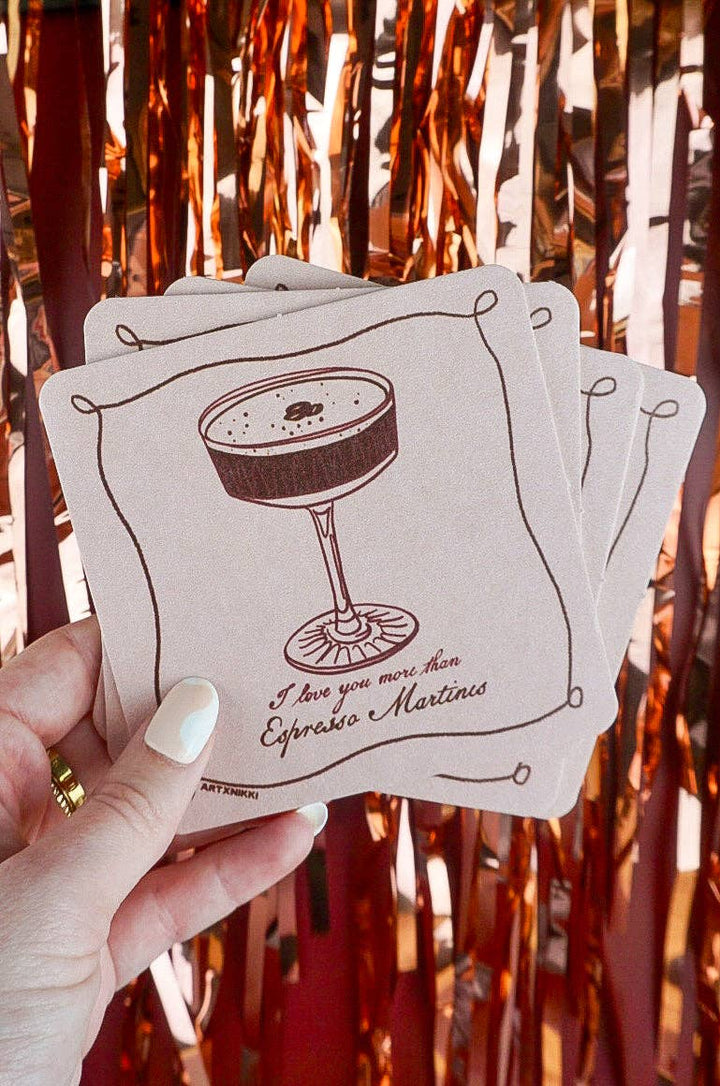 I love you more than
Espresso Martinis
ARTXNIKKI